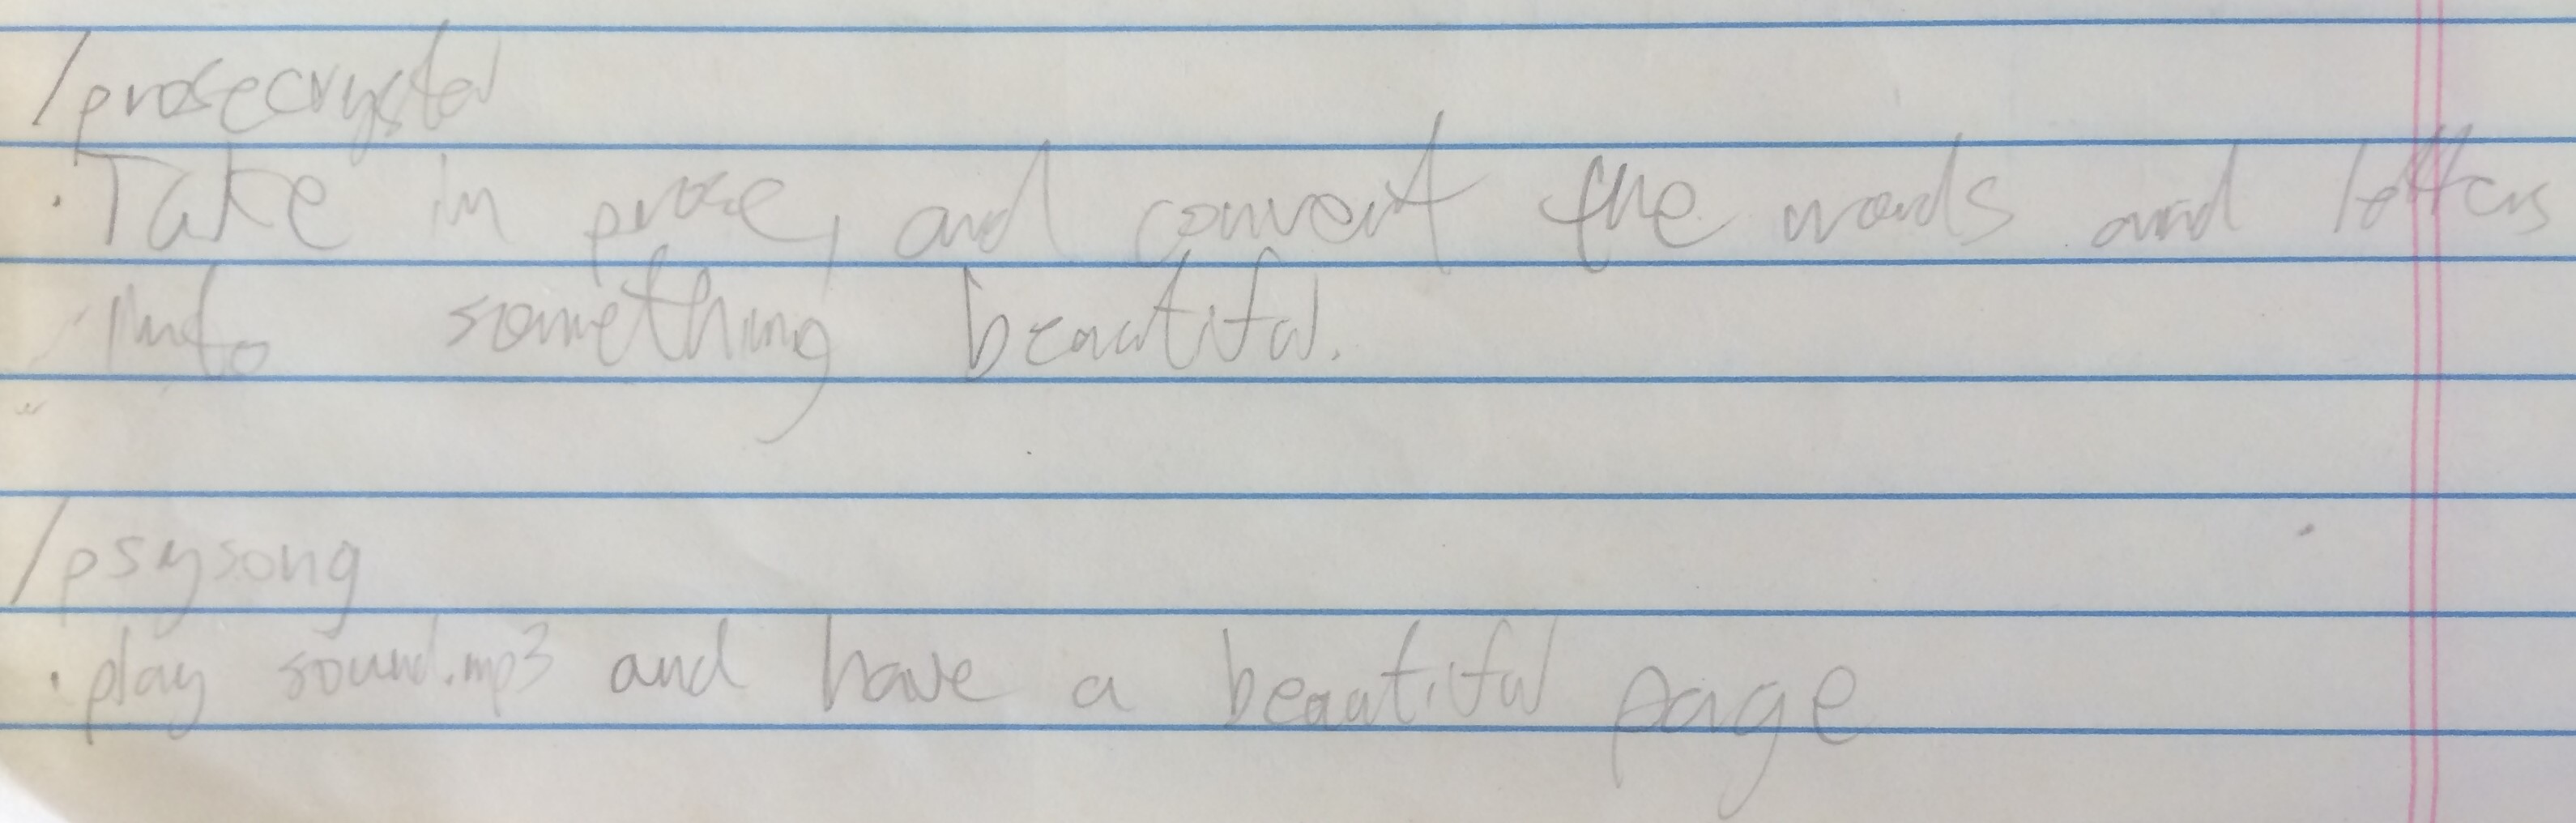 /prosecrystal
. Take in prose, and convert the words and letters
into something beautiful.
/psysong
. play sound.mp3 and have a beautiful page